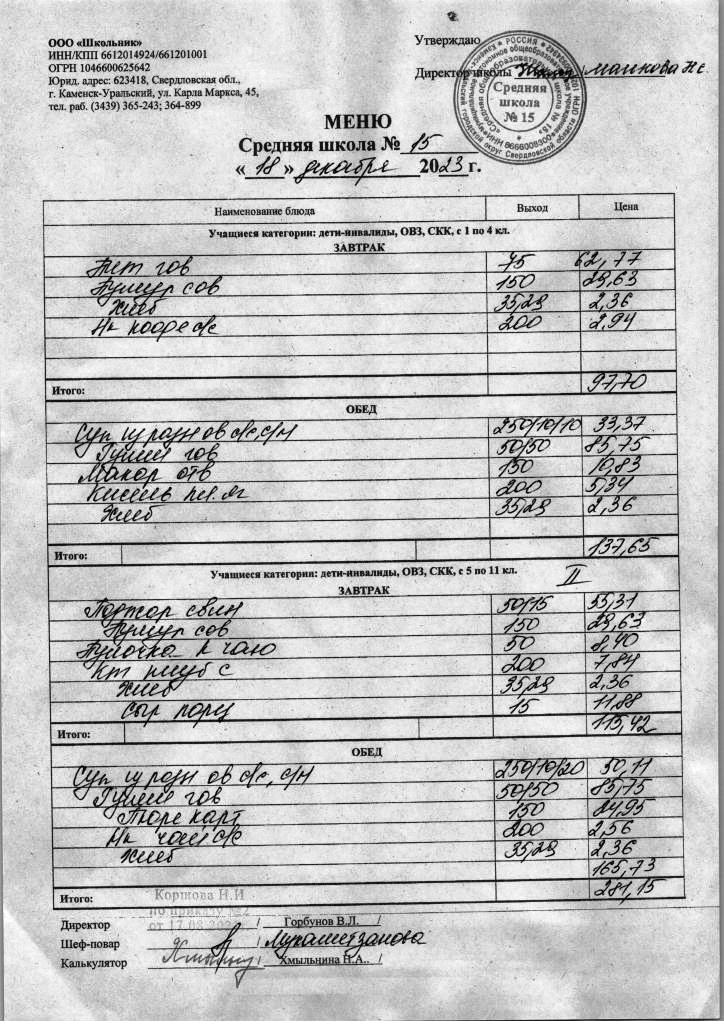 ООО «Школьник»
ИНН/КПП 6612014924/661201001
ОГРН 1046600625642
Юрид. адрес: 623418, Свердловская обл.,
г. Каменск-Уральский, ул. Карла Маркса, 45,
тел. раб. (3439) 365-243; 364-899
Утверждаю
Директор школы
Средняя школа № 15
МЕНЮ
Средняя школа № 15
« 18 » декабря 2023 г.
Наименование блюда Выход Цена
Учащиеся категории: дети-инвалиды, ОВЗ, СКК, с 1 по 4 кл.
ЗАВТРАК
гов 75 62,77
сов 150 29,63
Хлеб 35,29 2,36
Нк кофе с/с 200 2,94
Итого: 97,70
ОБЕД
Суп из разн ов с/с, с/н 250/10/10 33,37
Гуляш гов 50/50 85,75
Макар отв 150 10,83
Кисель пл. яг 200 5,34
Хлеб 35,29 2,36
Итого: 137,65
Учащиеся категории: дети-инвалиды, ОВЗ, СКК, с 5 по 11 кл. II
ЗАВТРАК
Поджар свин 50/15 55,31
сов 150 29,63
Булочка к чаю 50 8,40
200 7,84
Хлеб 35,29 2,36
Сыр порц 15 11,88
Итого: 115,42
ОБЕД
Суп из разн ов с/с, с/н 250/10/20 50,11
Гуляш гов 50/50 85,75
Пюре карт 150 24,95
Нк чай с/с 200 2,56
Хлеб 35,29 2,36
165,73
Итого: 281,15
Коршова Н.И
по приказу №2
от 17.08
Директор / Горбунов В.Л. /
Шеф-повар / Мухаметзанова
Калькулятор / Хмыльнина Н.А.. /